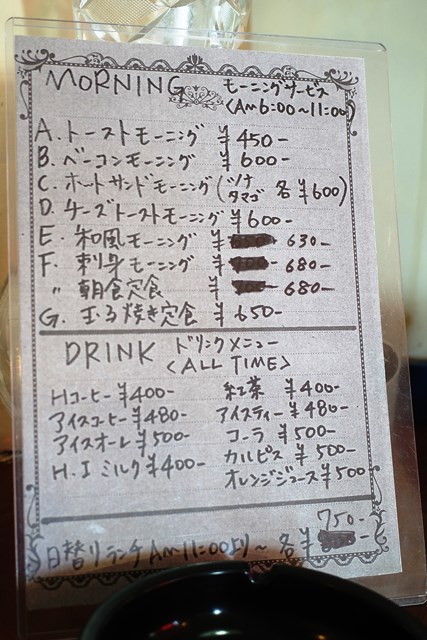 MORNING モーニングサービス
(AM6:00～11:00)
A. トーストモーニング ¥450-
B. ベーコンモーニング ¥600-
C. ホットサンドモーニング (ツナ タマゴ 各 ¥600)
D. チーズトーストモーニング ¥600-
E. 和風モーニング ¥ 630-
F. 刺身モーニング ¥ 680-
〃 朝食定食 ¥ 680-
G. 玉子焼き定食 ¥650-
DRINK ドリンクメニュー
<ALL TIME>
Hコーヒー ¥400- 紅茶 ¥400-
アイスコーヒー ¥480- アイスティー ¥480-
アイスオーレ ¥500- コーラ ¥500-
H.I ミルク ¥400- カルピス ¥500-
オレンジジュース ¥500
750-
日替りランチ AM11:00より～ 各 ¥ -